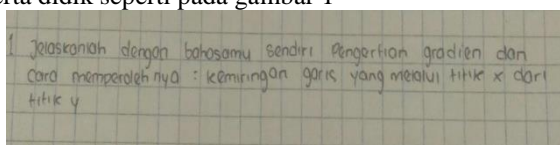 erta didik seperti pada gambar 1
1 Jelaskanlah dengan bahasamu sendiri Pengertian gradien dan
cara memperoleh nya : kemiringan garis yang melalui titik x dari
titik y